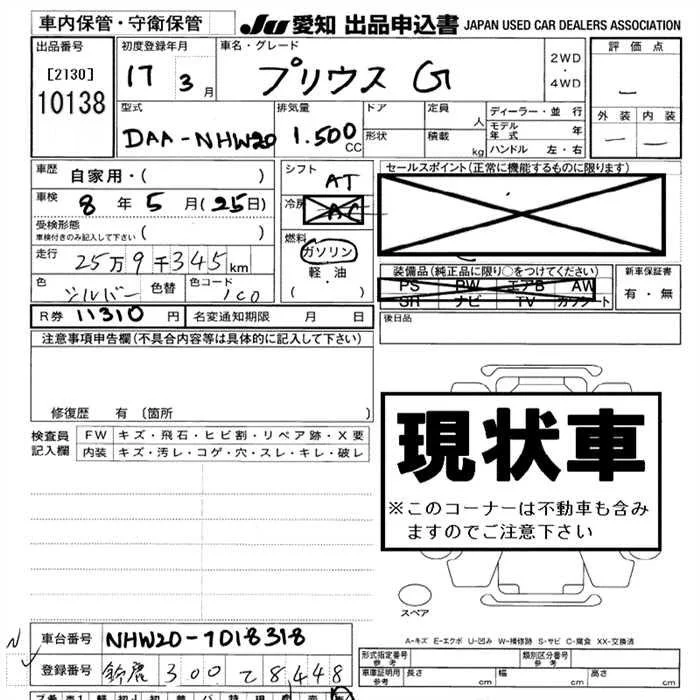 車内保管・守衛保管
JU 愛知 出品申込書 JAPAN USED CAR DEALERS ASSOCIATION
出品番号
[2130]
10138
初度登録年月
17 3月
車名・グレード
プリウス G
2WD
・
4WD
評価点
—
外装 内装
— —
型式
DAA-NHW20
排気量
1.500CC
ドア
形状
定員 人
積載 kg
ディーラー・並行
モデル年式 年
ハンドル 左・右
車歴 自家用・( )
車検 8年5月(25日)
受検形態
車検付きのみ記入して下さい ( )
走行 25万9千345km
色 シルバー 色替 色コード 1C0
R券 11310円 名変通知期限 月 日
シフト AT
冷房 AC
燃料
ガソリン
軽・油
( ・ )
セールスポイント(正常に機能するものに限ります)
装備品(純正品に限り○をつけてください)
PS PW エアB AW
SR ナビ TV カワシート
新車保証書
有・無
後日品
注意事項申告欄(不具合内容等は具体的に記入して下さい)
修復歴 有 〔箇所 〕
検査員記入欄
FW キズ・飛石・ヒビ割・リペア跡・X要
内装 キズ・汚レ・コゲ・穴・スレ・キレ・破レ
現状車
※このコーナーは不動車も含み
ますのでご注意下さい
スペア
A-キズ E-エクボ U-凹み W-補修跡 S-サビ C-腐食 XX-交換済
車台番号 NHW20-7018318
登録番号 鈴鹿 300 て 8,448
形式指定番号 参考
類別区分番号 参考
車庫証明用 参考 長さ cm 幅 cm 高さ cm